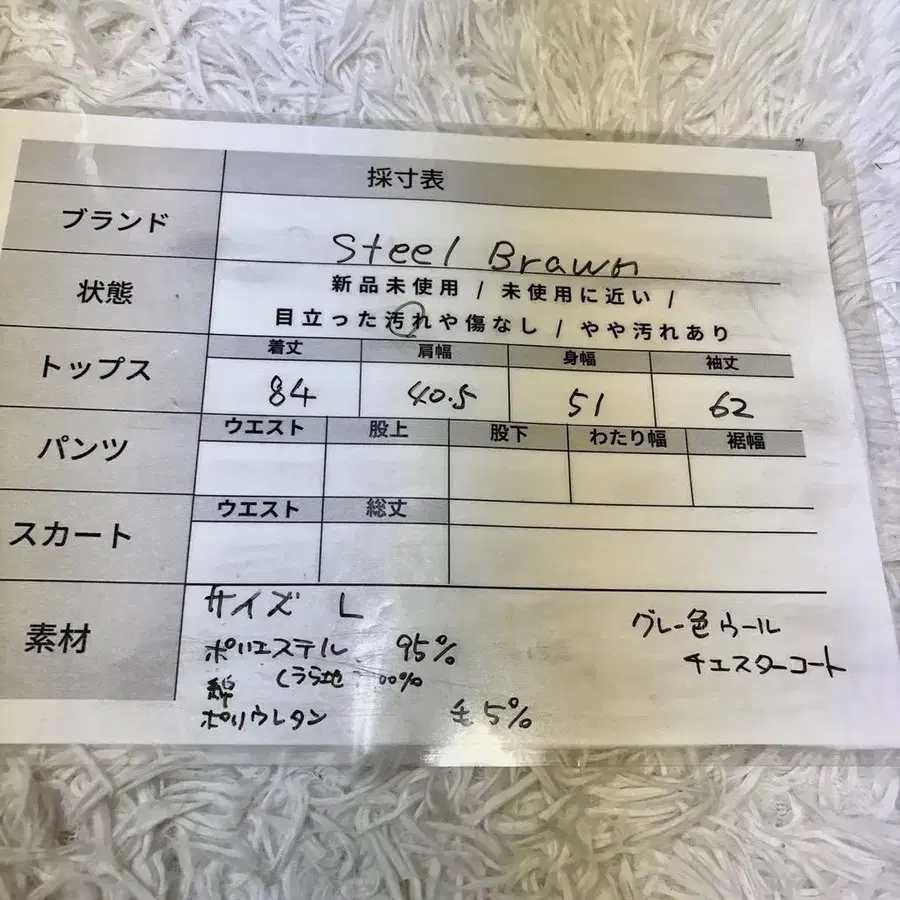 採寸表
ブランド Steel Brawn
状態 新品未使用 / 未使用に近い /
目立った汚れや傷なし / やや汚れあり
トップス 着丈 肩幅 身幅 袖丈
84 40.5 51 62
パンツ ウエスト 股上 股下 わたり幅 裾幅
スカート ウエスト 総丈
素材 サイズ L
グレー色ウール
ポリエステル 95%
チェスターコート
綿 (うら地 100%
ポリウレタン 毛 5%